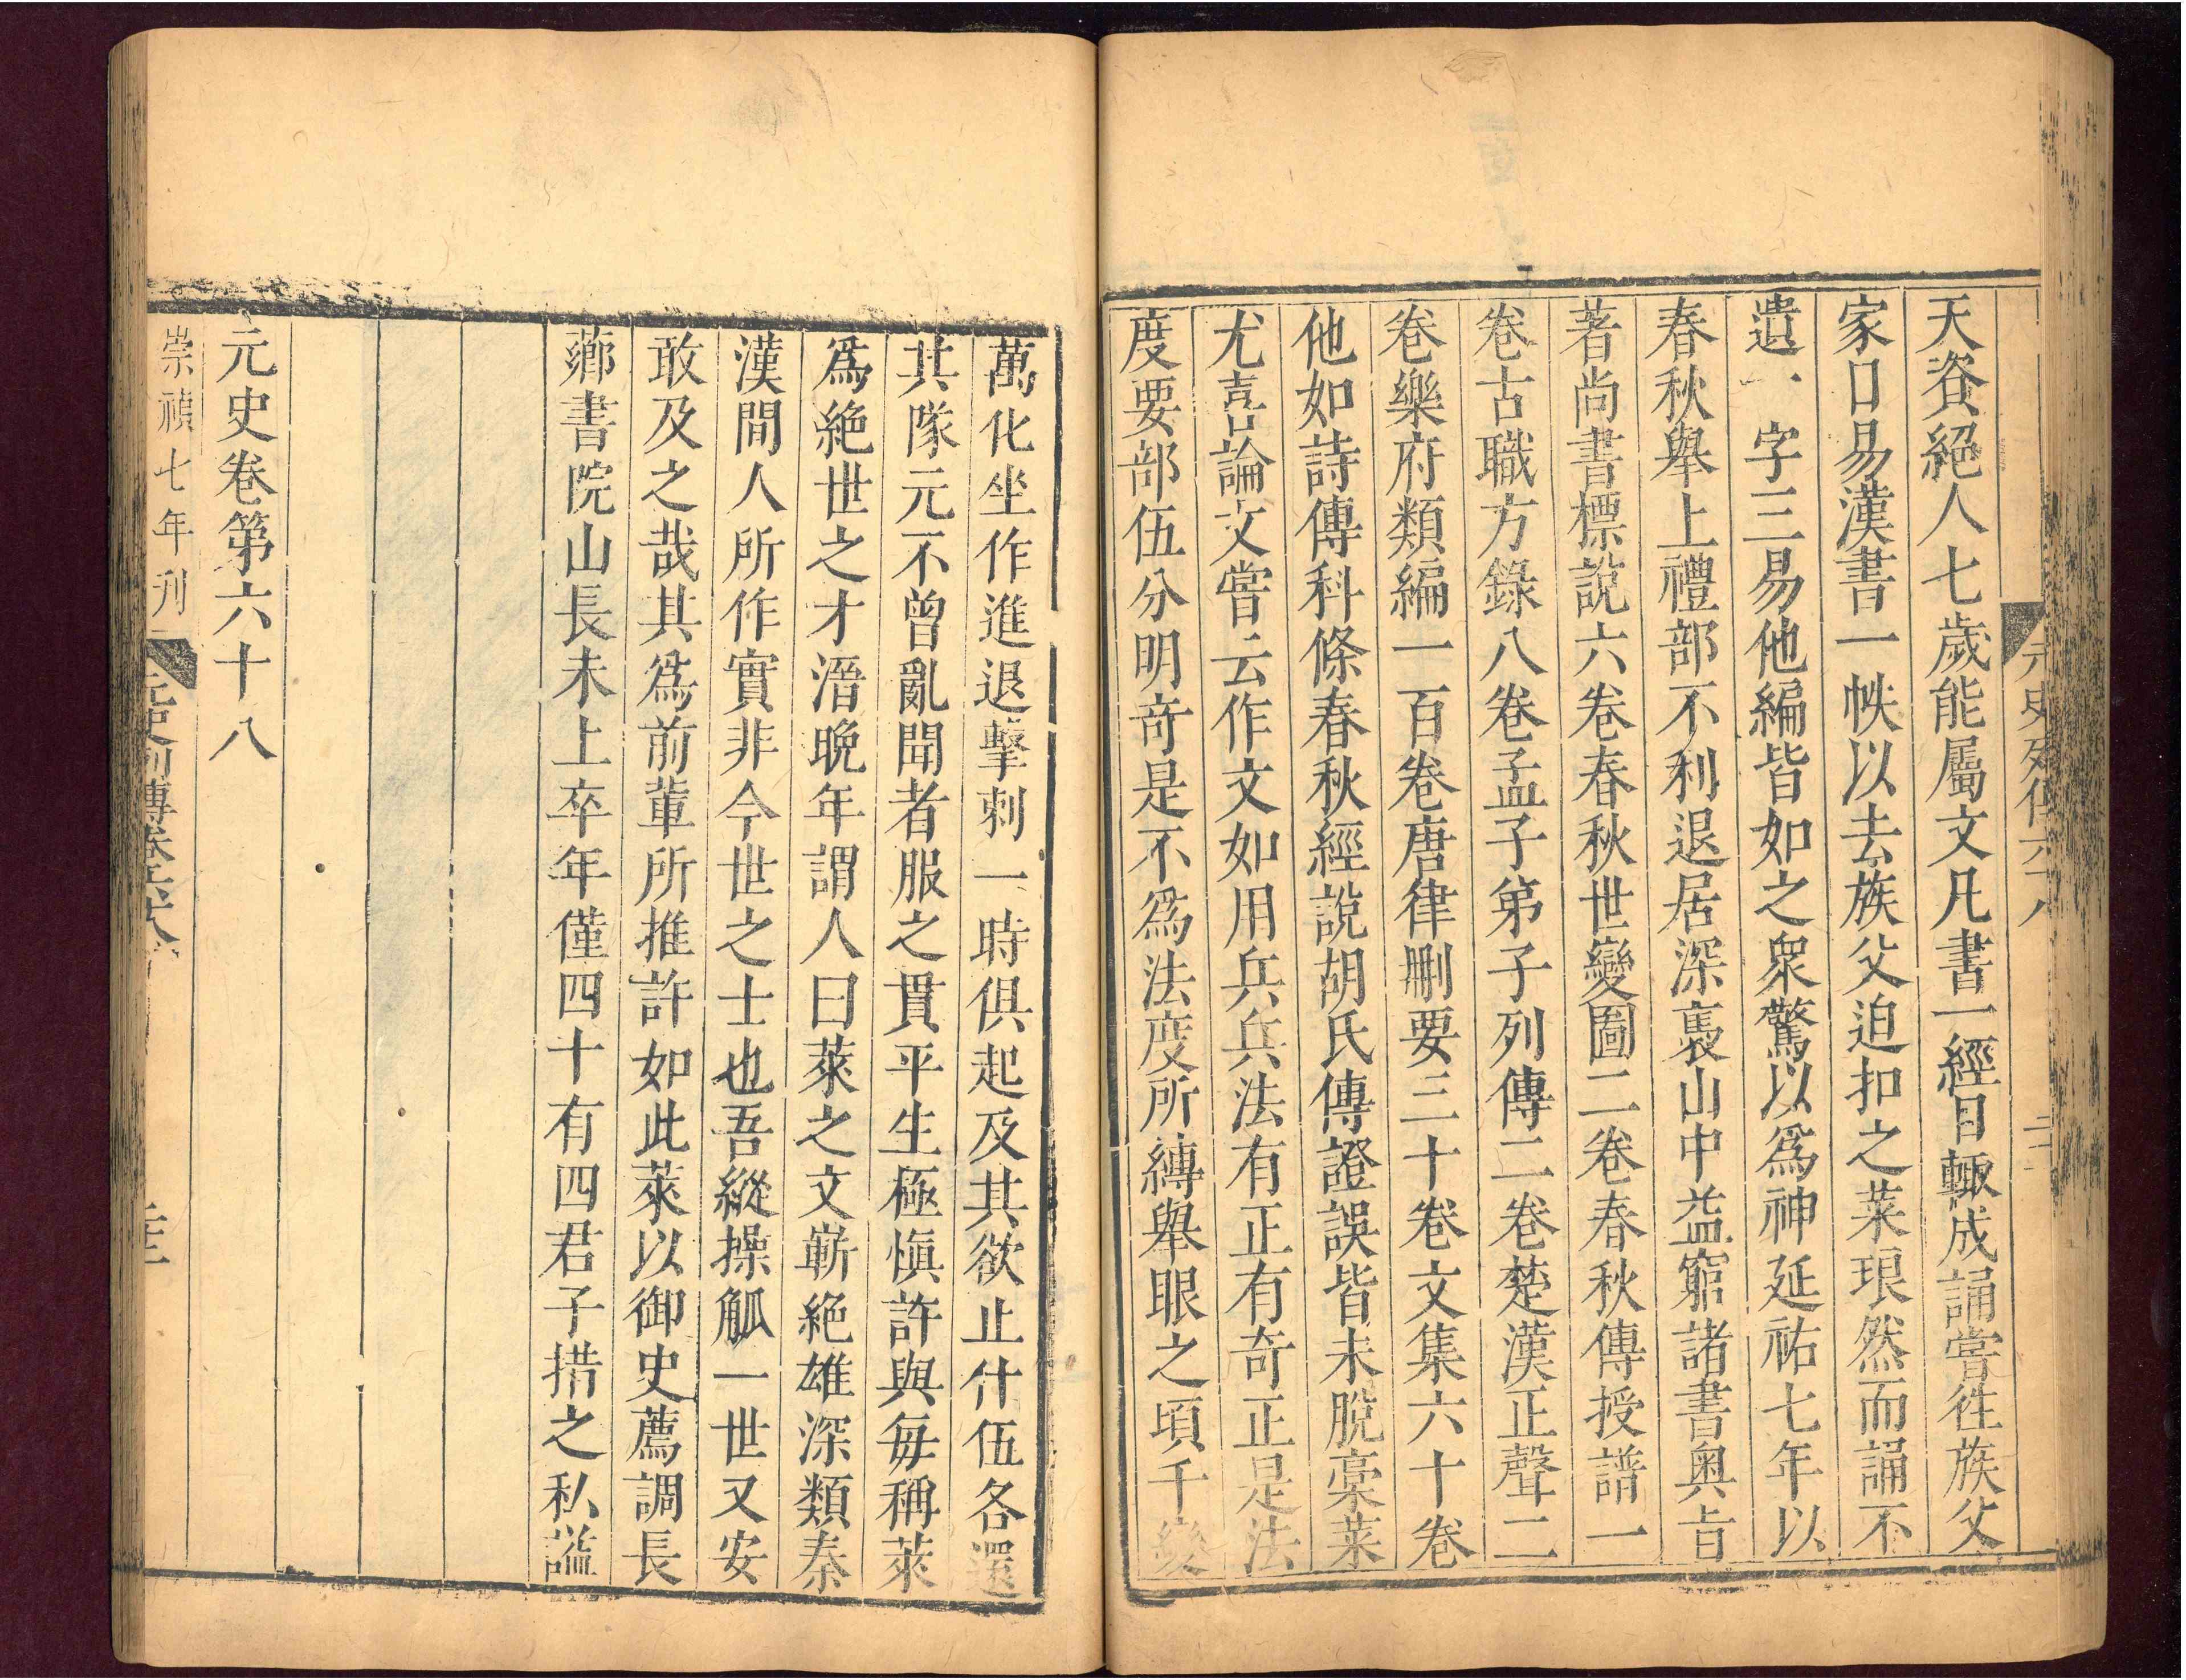 天資絕人七歲能屬文凡書一經目輙成誦嘗徃族父
家口易漢書一帙以去族父迫扣之萊琅然而誦不
遺一字三易他編皆如之衆驚以爲神延祐七年以
春秋舉上禮部不利退居深褭山中益窮諸書奥旨
著尚書標說六卷春秋世變圖二卷春秋傳授譜一
卷古職方錄八卷孟子弟子列傳二卷楚漢正聲二
卷樂府類編一百卷唐律刪要三十卷文集六十卷
他如詩傳科條春秋經說胡氏傳證誤皆未脫稾萊
尤喜論文嘗云作文如用兵兵法有正有奇正是法
度要部伍分明奇是不爲法度所縳舉眼之頃千變
萬化坐作進退擊刺一時俱起及其欲止什伍各還
其隊元不曾亂聞者服之貫平生極愼許與每稱萊
爲絶世之才溍晚年謂人曰萊之文嶄絶雄深類秦
漢間人所作實非今世之士也吾縱操觚一世又安
敢及之哉其爲前輩所推許如此萊以御史薦調長
薌書院山長未上卒年僅四十有四君子措之私諡
元史卷第六十八
崇禎七年刊
元史列傳卷六十八